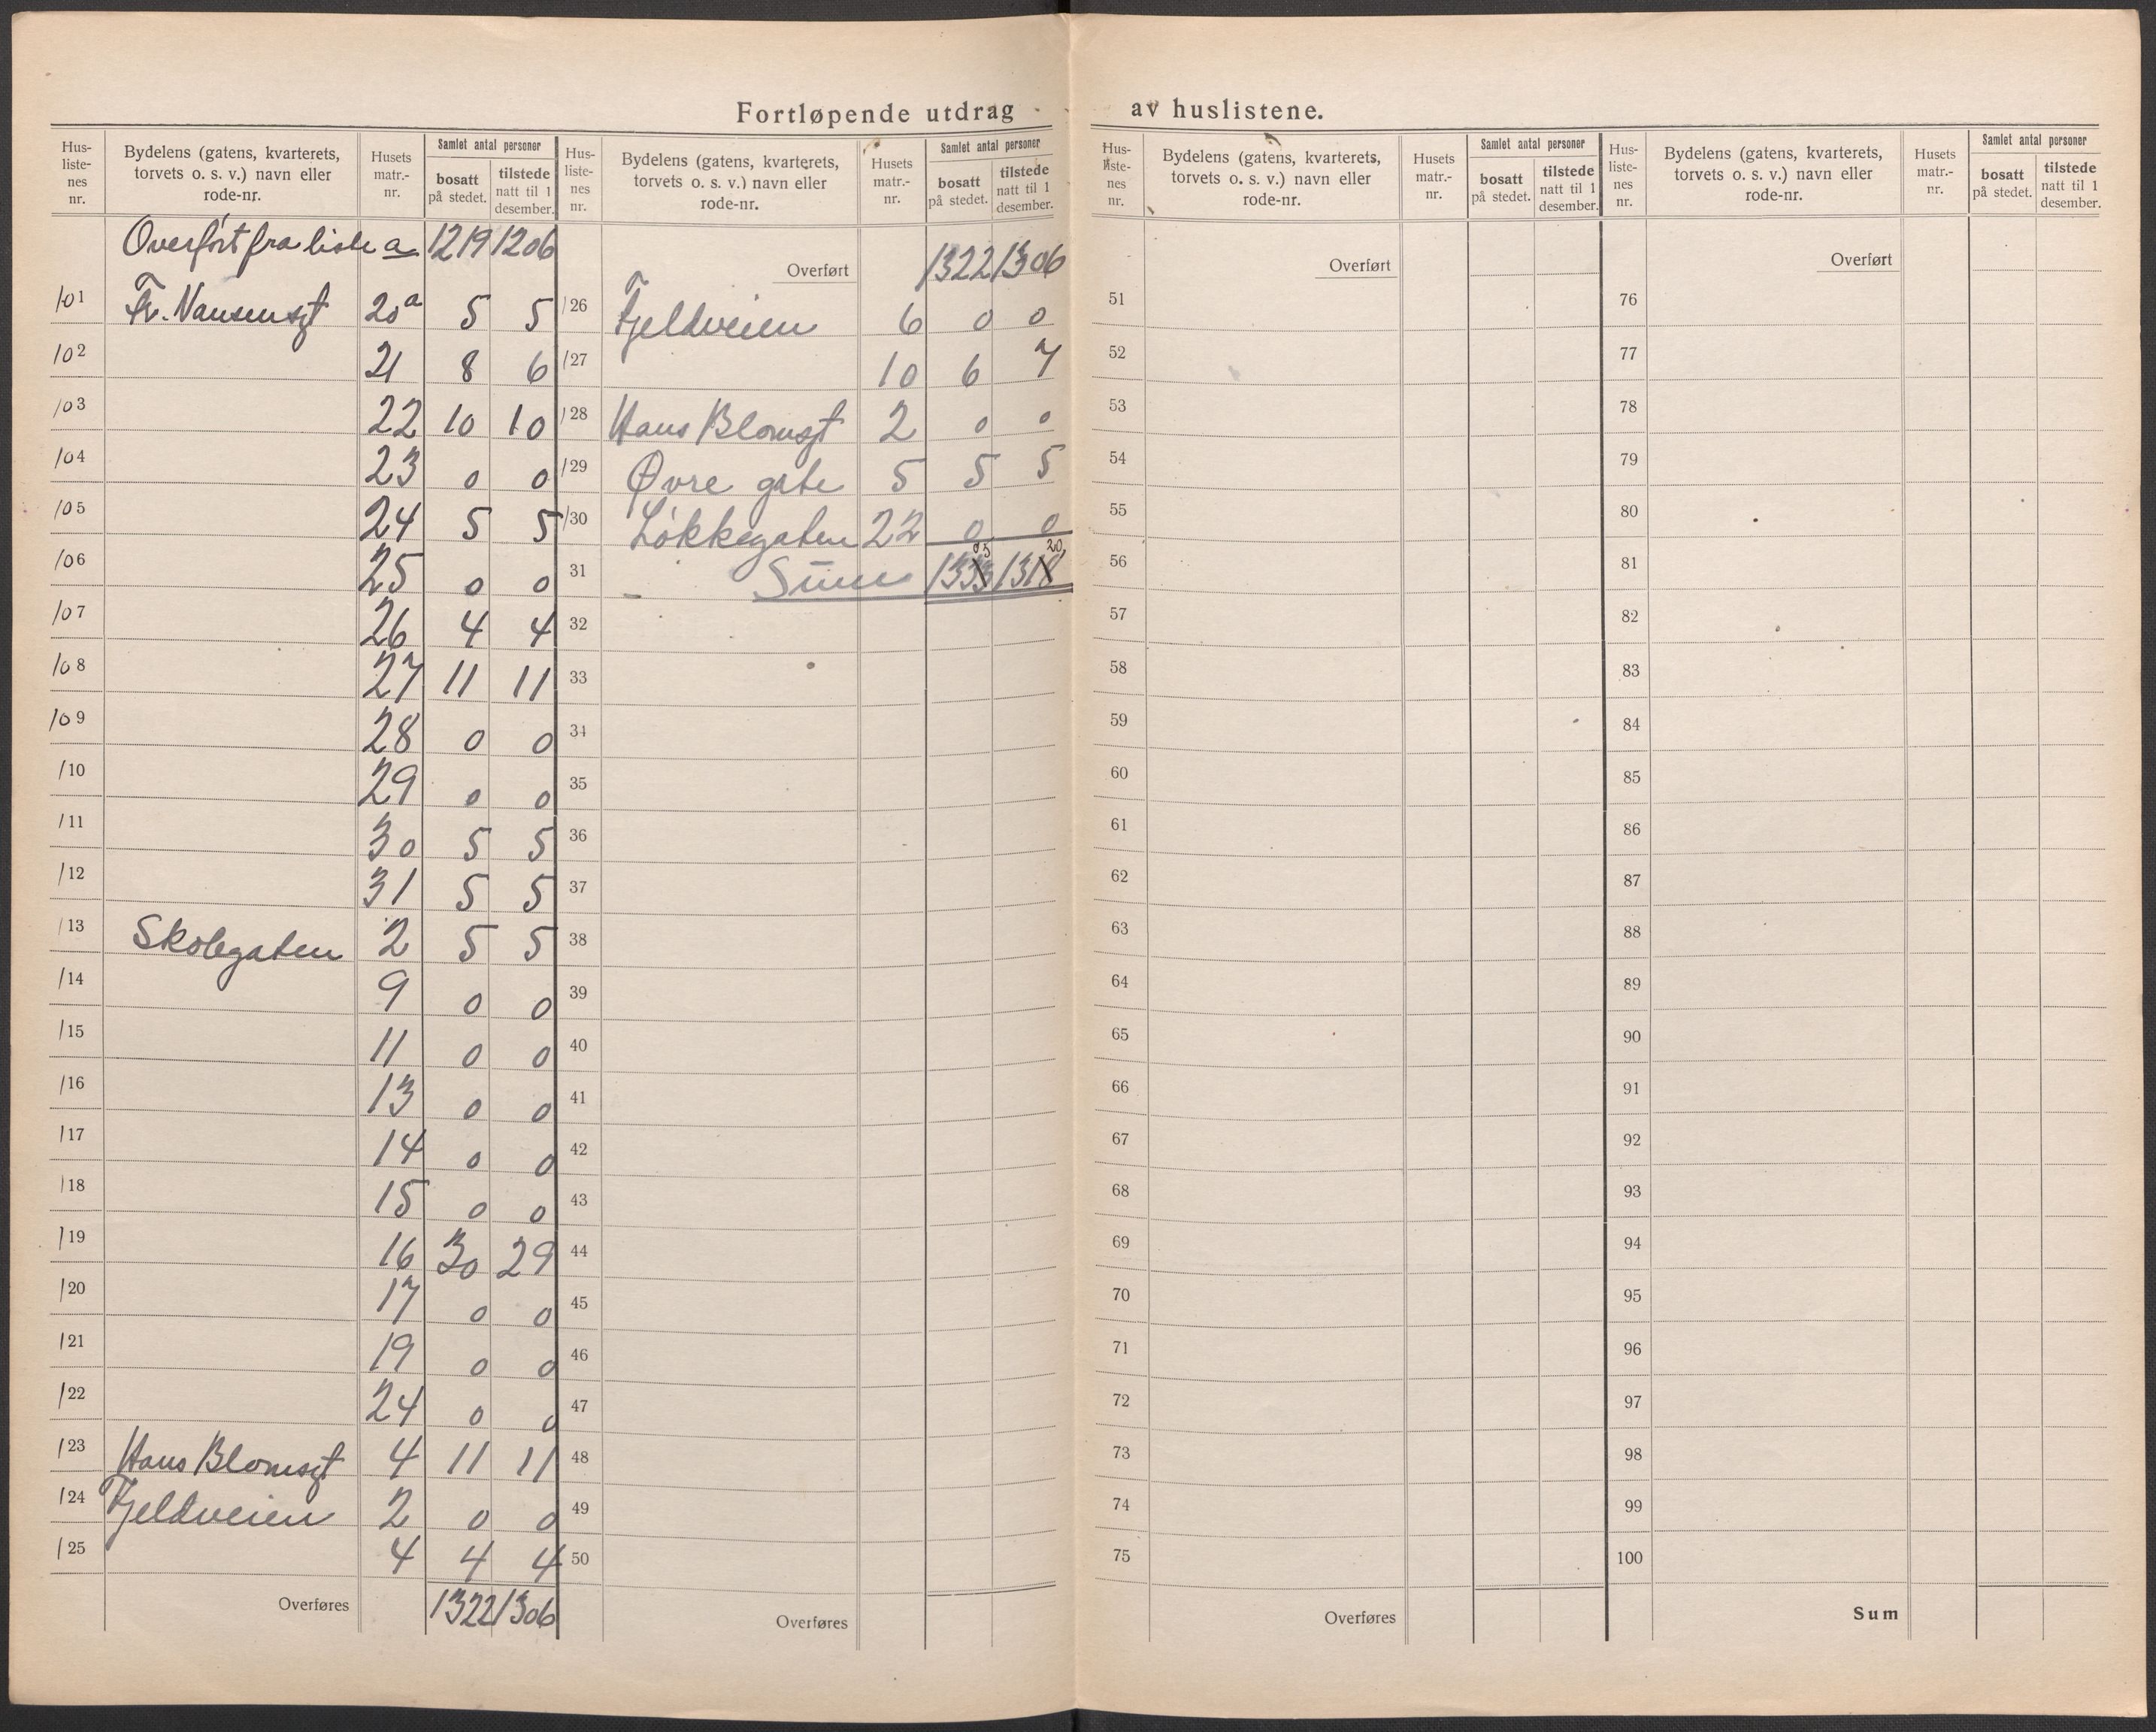 Fortløpende utdrag av huslistene.
Hus-
liste-
nes
nr.
Bydelens (gatens, kvarterets,
torvets o. s. v.) navn eller
rode-nr.
Husets
matr.-
nr.
Samlet antal personer
bosatt
på stedet.
tilstede
natt til 1
desember.
Overført fra liste a 1219 1206
101 Fr. Nansensgt 20a 5 5
102 21 8 6
103 22 10 10
104 23 0 0
105 24 5 5
106 25 0 0
107 26 4 4
108 27 11 11
109 28 0 0
110 29 0 0
111 30 5 5
112 31 5 5
113 Skolegaten 2 5 5
114 9 0 0
115 11 0 0
116 13 0 0
117 14 0 0
118 15 0 0
119 16 30 29
120 17 0 0
121 19 0 0
122 24 0 0
123 Hans Blomsgt 4 11 11
124 Fjeldveien 2 0 0
125 4 4 4
Overføres 1322 1306
Hus-
liste-
nes
nr.
Bydelens (gatens, kvarterets,
torvets o. s. v.) navn eller
rode-nr.
Husets
matr.-
nr.
Samlet antal personer
bosatt
på stedet.
tilstede
natt til 1
desember.
Overført 1322 1306
126 Fjeldveien 6 0 0
127 10 6 7
128 Hans Blomsgt 2 0 0
129 Øvre gate 5 5 5
130 Løkkegaten 22 0 0
31 Sum 1333 1318
32
33
34
35
36
37
38
39
40
41
42
43
44
45
46
47
48
49
50
Overføres
Hus-
liste-
nes
nr.
Bydelens (gatens, kvarterets,
torvets o. s. v.) navn eller
rode-nr.
Husets
matr.-
nr.
Samlet antal personer
bosatt
på stedet.
tilstede
natt til 1
desember.
Overført
51
52
53
54
55
56
57
58
59
60
61
62
63
64
65
66
67
68
69
70
71
72
73
74
75
Overføres
Hus-
liste-
nes
nr.
Bydelens (gatens, kvarterets,
torvets o. s. v.) navn eller
rode-nr.
Husets
matr.-
nr.
Samlet antal personer
bosatt
på stedet.
tilstede
natt til 1
desember.
Overført
76
77
78
79
80
81
82
83
84
85
86
87
88
89
90
91
92
93
94
95
96
97
98
99
100
Sum